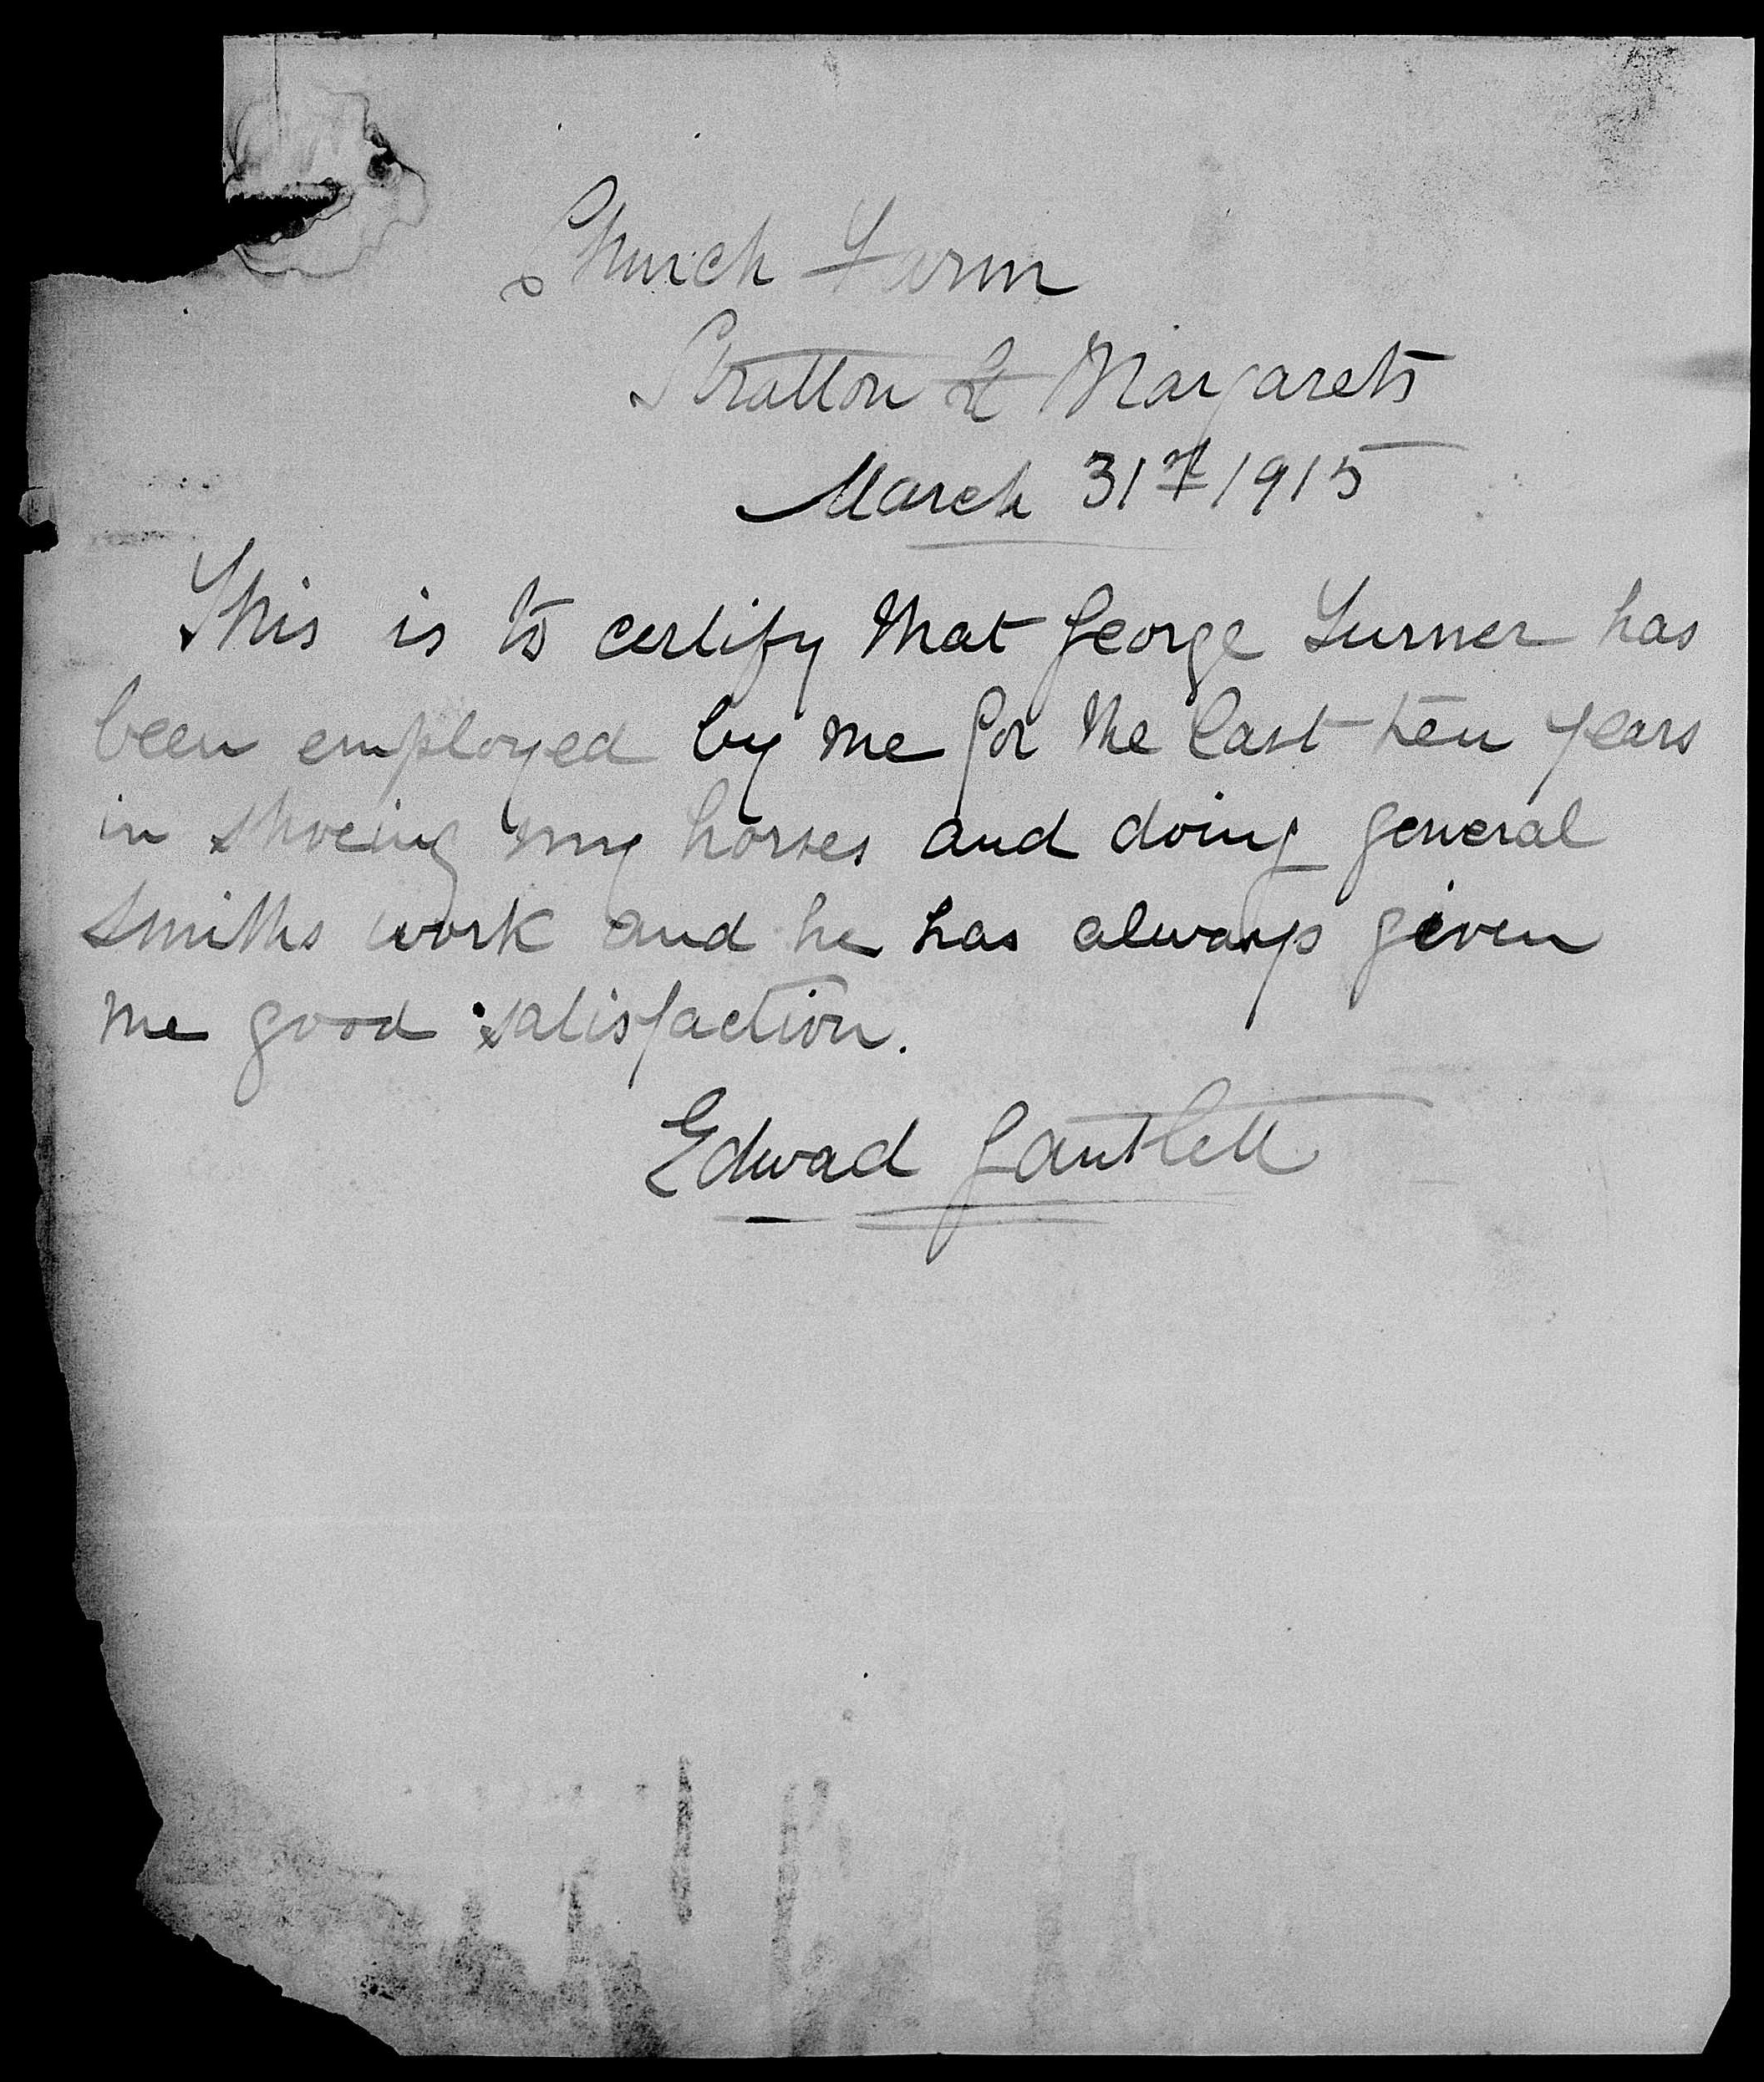 Church Farm
Stratton St Margarets
March 31st 1915
This is to certify that George Turner has
been employed by me for the last ten years
in shoeing my horses and doing general
smiths work and he has always given
me good satisfaction.
Edwad Gantlett